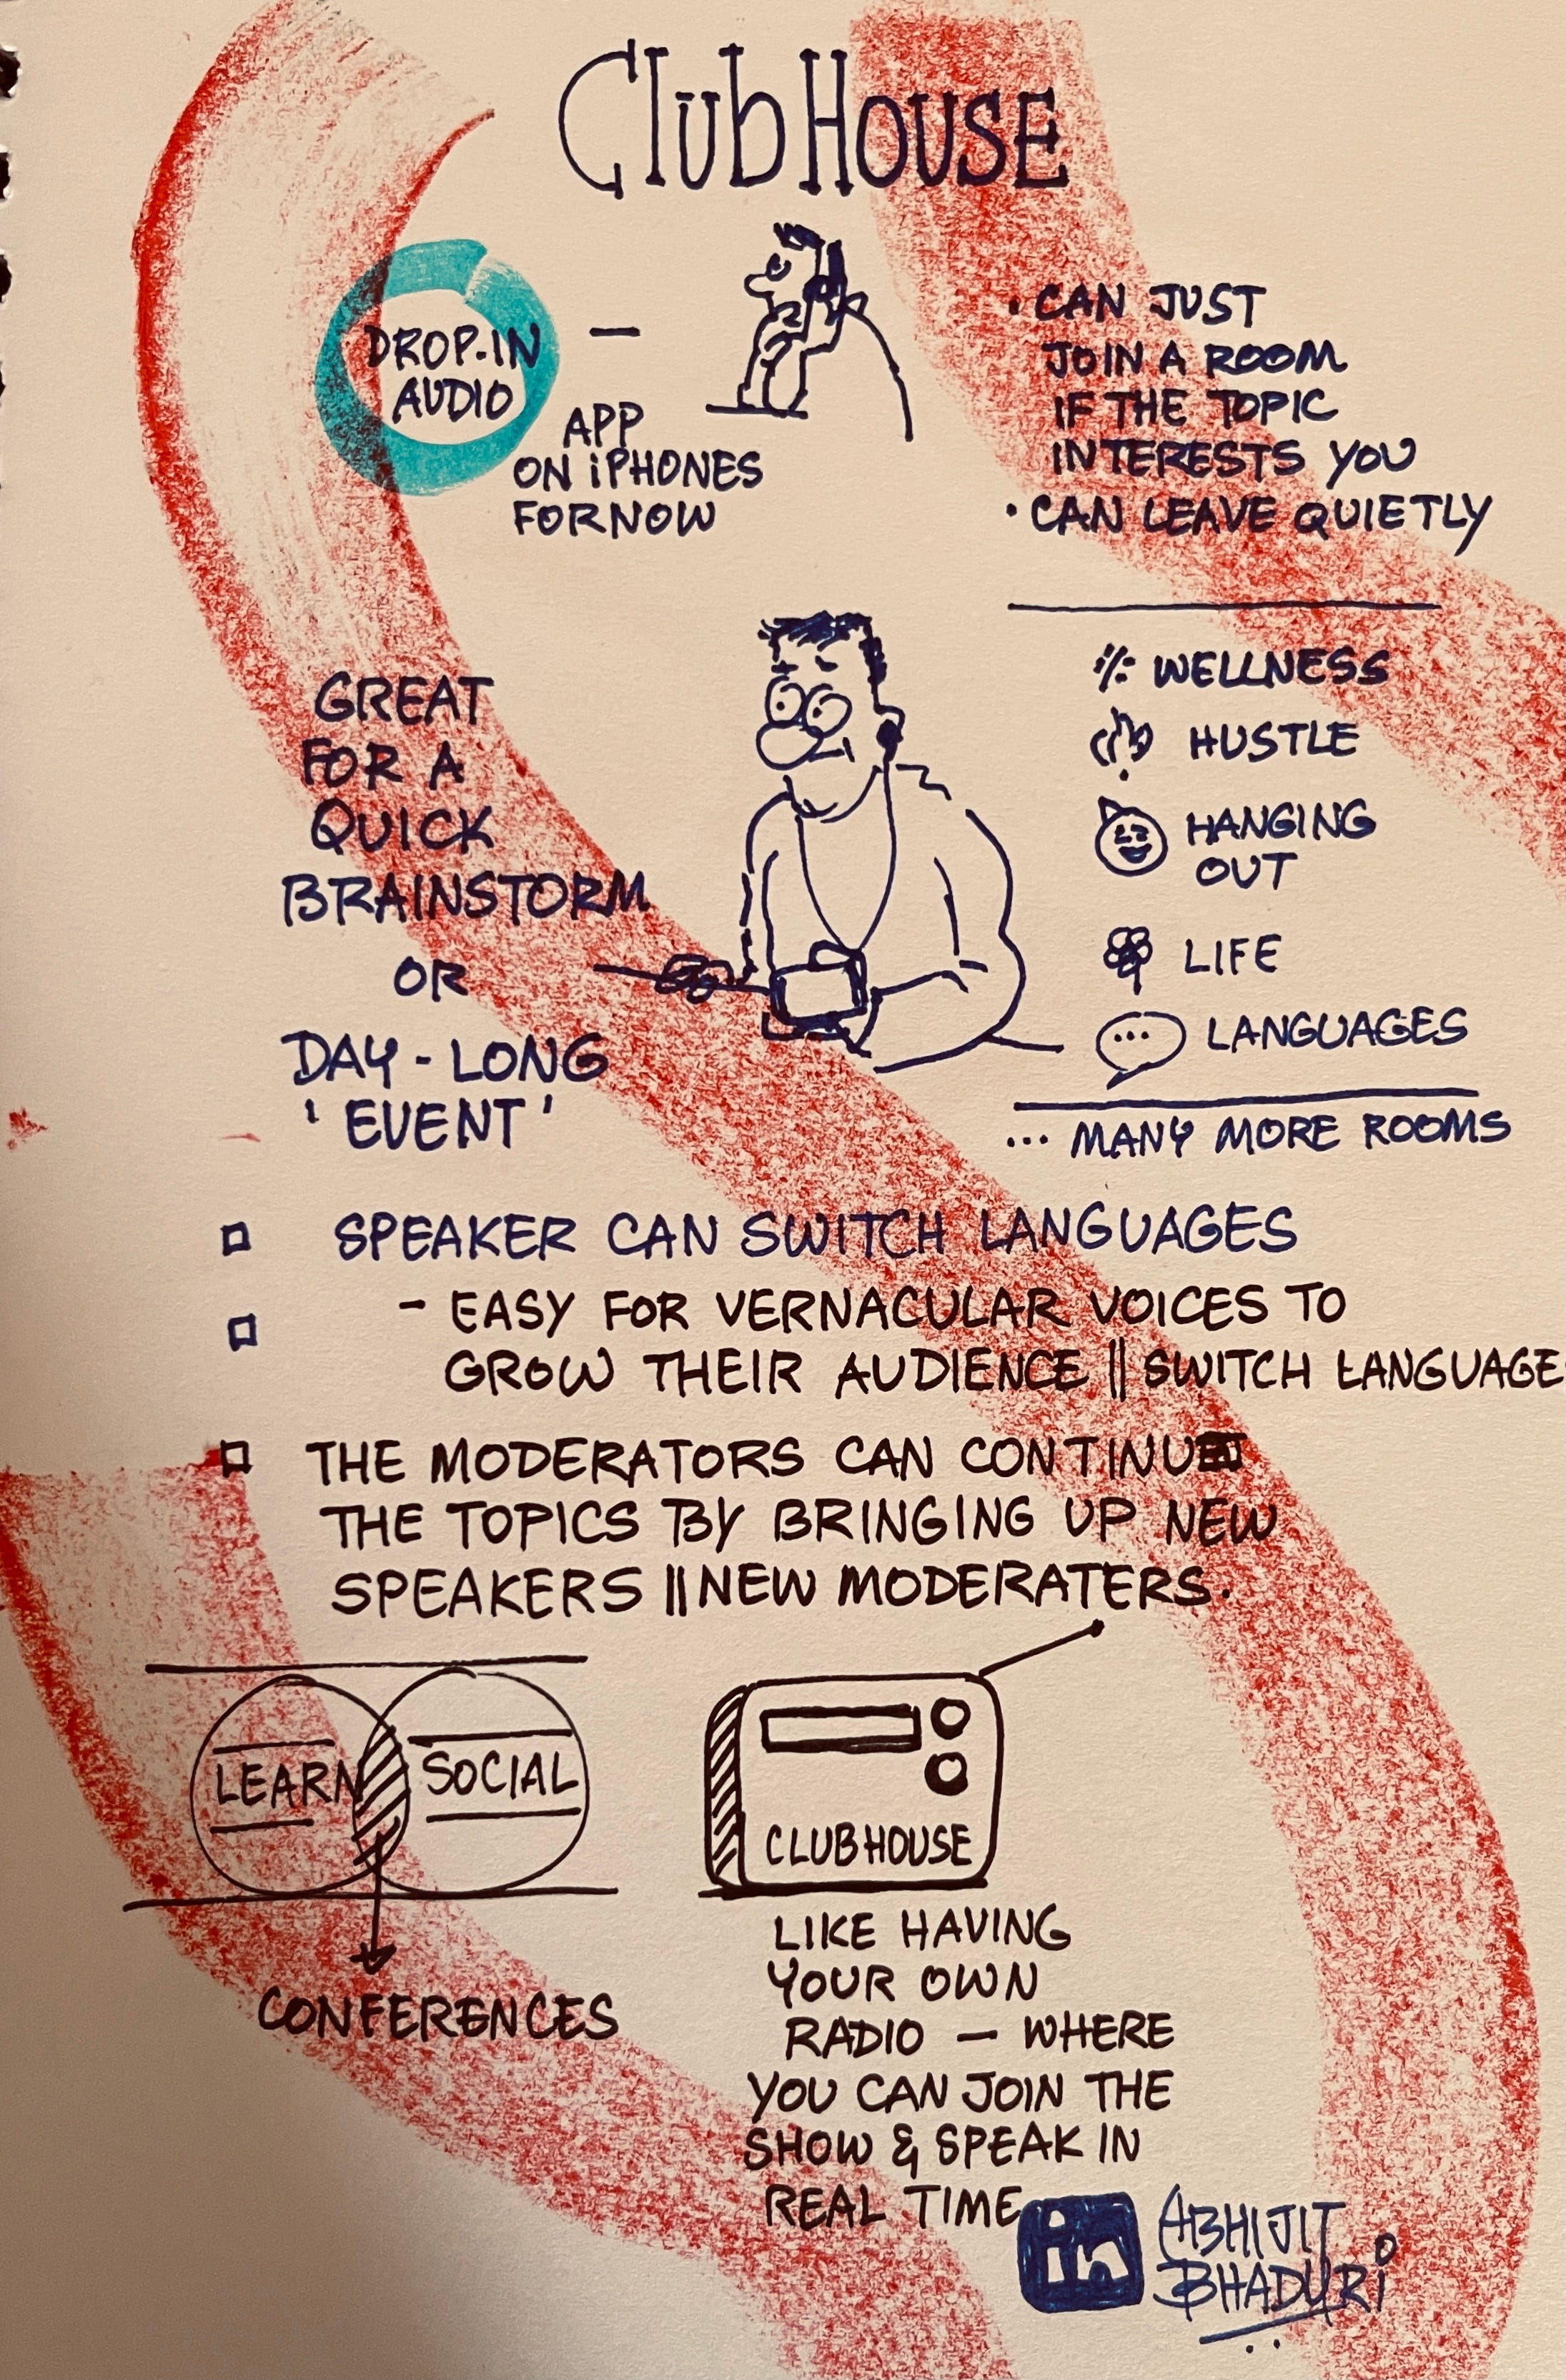 ClubHOUSE
DROP-IN
AUDIO
—
APP
ON iPHONES
FOR NOW
• CAN JUST
JOIN A ROOM
IF THE TOPIC
INTERESTS YOU
• CAN LEAVE QUIETLY
GREAT
FOR A
QUICK
BRAINSTORM
OR
DAY-LONG
'EVENT'
WELLNESS
HUSTLE
HANGING
OUT
LIFE
LANGUAGES
... MANY MORE ROOMS
SPEAKER CAN SWITCH LANGUAGES
- EASY FOR VERNACULAR VOICES TO
GROW THEIR AUDIENCE || SWITCH LANGUAGE
THE MODERATORS CAN CONTINUE
THE TOPICS BY BRINGING UP NEW
SPEAKERS || NEW MODERATERS.
LEARN
SOCIAL
CONFERENCES
CLUBHOUSE
LIKE HAVING
YOUR OWN
RADIO — WHERE
YOU CAN JOIN THE
SHOW & SPEAK IN
REAL TIME
in
ABHIJIT
BHADURI